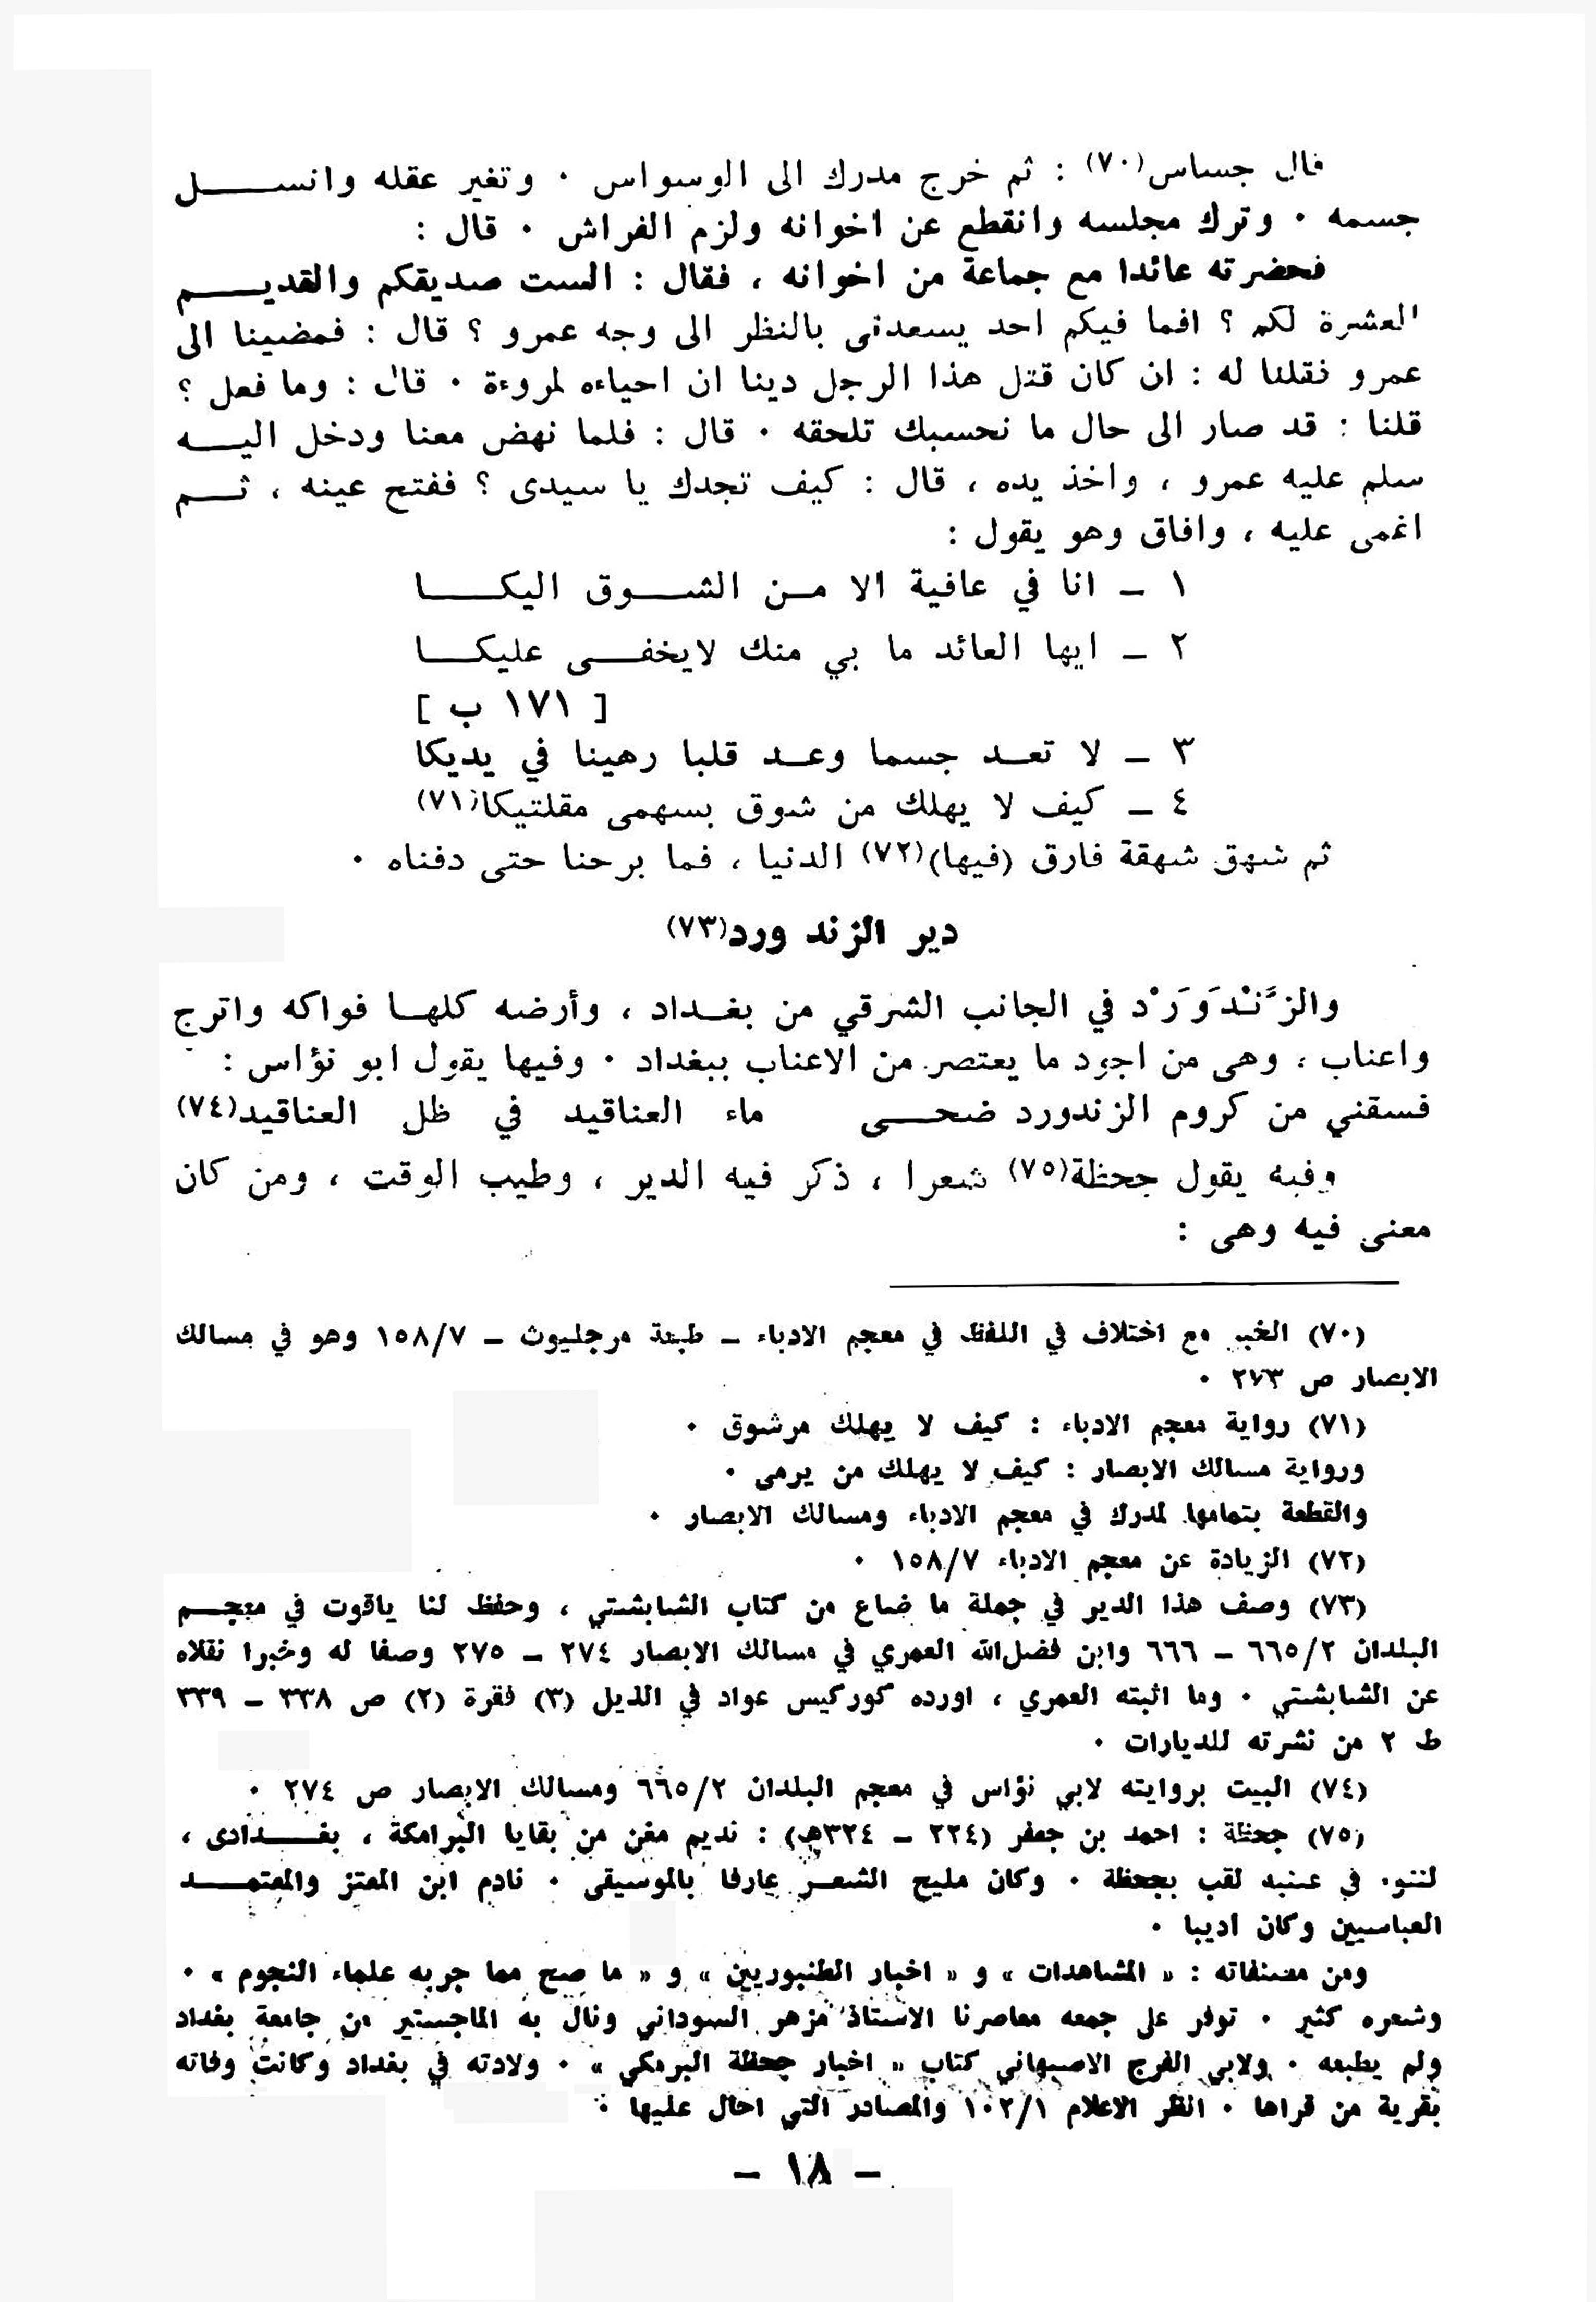 قال جساس(٧٠) : ثم خرج مدرك الى الوسواس ٠ وتغير عقله وانسل
جسمه ٠ وترك مجلسه وانقطع عن اخوانه ولزم الفراش ٠ قال :
فحضرته عائدا مع جماعة من اخوانه ، فقال : الست صديقكم والقديم
العشرة لكم ؟ افما فيكم احد يسعدنى بالنظر الى وجه عمرو ؟ قال : فمضينا الى
عمرو فقلنا له : ان كان قتل هذا الرجل دينا ان احياءه لمروءة ٠ قال : وما فعل ؟
قلنا : قد صار الى حال ما نحسبك تلحقه ٠ قال : فلما نهض معنا ودخل اليه
سلم عليه عمرو ، واخذ يده ، قال : كيف تجدك يا سيدى ؟ ففتح عينه ، ثم
اغمى عليه ، وافاق وهو يقول :
١ ـ انا في عافية الا من الشوق اليكا
٢ ـ ايها العائد ما بي منك لايخفى عليكا
[ ١٧١ ب ]
٣ ـ لا تعد جسما وعد قلبا رهينا في يديكا
٤ ـ كيف لا يهلك من شوق بسهمى مقلتيكا(٧١)
ثم شهق شهقة فارق (فيها)(٧٢) الدنيا ، فما برحنا حتى دفناه ٠
دير الزند ورد(٧٣)
والزَّنْدَوَرْد في الجانب الشرقي من بغداد ، وأرضه كلها فواكه واترج
واعناب ، وهى من اجود ما يعتصر من الاعناب ببغداد ٠ وفيها يقول ابو نؤاس :
فسقني من كروم الزندورد ضحى ماء العناقيد في ظل العناقيد(٧٤)
وفيه يقول جحظة(٧٥) شعرا ، ذكر فيه الدير ، وطيب الوقت ، ومن كان
معنى فيه وهى :
(٧٠) الخبر مع اختلاف في اللفظ في معجم الادباء ـ طبعة مرجليوث ـ ١٥٨/٧ وهو في مسالك
الابصار ص ٢٧٣ ٠
(٧١) رواية معجم الادباء : كيف لا يهلك مرشوق ٠
ورواية مسالك الابصار : كيف لا يهلك من يرمى ٠
والقطعة بتمامها لمدرك في معجم الادباء ومسالك الابصار ٠
(٧٢) الزيادة عن معجم الادباء ١٥٨/٧ ٠
(٧٣) وصف هذا الدير في جملة ما ضاع من كتاب الشابشتي ، وحفظ لنا ياقوت في معجم
البلدان ٦٦٥/٢ ـ ٦٦٦ وابن فضل الله العمري في مسالك الابصار ٢٧٤ ـ ٢٧٥ وصفا له وخبرا نقلاه
عن الشابشتي ٠ وما اثبته العمري ، اورده كوركيس عواد في الذيل (٣) فقرة (٢) ص ٣٣٨ ـ ٣٣٩
ط ٢ من نشرته للديارات ٠
(٧٤) البيت بروايته لابي نؤاس في معجم البلدان ٦٦٥/٢ ومسالك الابصار ص ٢٧٤ ٠
(٧٥) جحظة : احمد بن جعفر (٢٢٤ ـ ٣٢٤هـ) : نديم مغن من بقايا البرامكة ، بغدادى ،
لنتوء في عينيه لقب بجحظة ٠ وكان مليح الشعر عارفا بالموسيقى ٠ نادم ابن المعتز والمعتمد
العباسيين وكان اديبا ٠
ومن مصنفاته : « المشاهدات » و « اخبار الطنبوريين » و « ما صح مما جربه علماء النجوم » ٠
وشعره كثير ٠ توفر على جمعه معاصرنا الاستاذ مزهر السوداني ونال به الماجستير من جامعة بغداد
ولم يطبعه ٠ ولابي الفرج الاصبهاني كتاب « اخبار جحظة البرمكي » ٠ ولادته في بغداد وكانت وفاته
بقرية من قراها ٠ انظر الاعلام ١٠٢/١ والمصادر التي احال عليها ٠
ـ ١٨ ـ